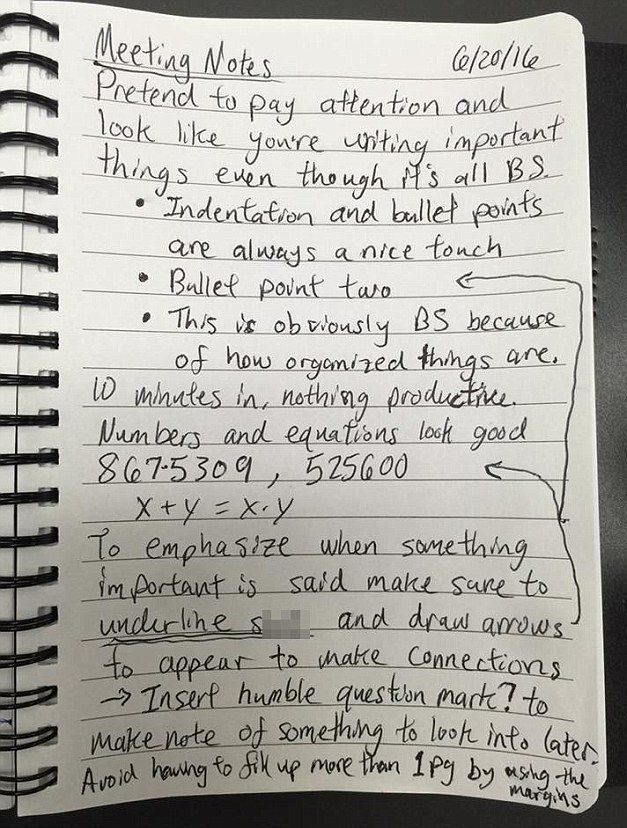 Meeting Notes 6/20/16
Pretend to pay attention and
look like you're writing important
things even though it's all BS.
• Indentation and bullet points
are always a nice touch
• Bullet point two
• This is obviously BS because
of how organized things are.
10 minutes in, nothing productive.
Numbers and equations look good
867-5309, 525600
x + y = x · y
To emphasize when something
important is said make sure to
underline s and draw arrows
to appear to make connections
→ Insert humble question mark? to
make note of something to look into later.
Avoid having to fill up more than 1 pg by using the
margins